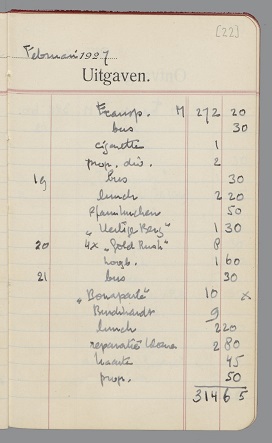 [22]
Februari 1927
Uitgaven.
Transp. M 272 20
bus 30
cigaretten 1
prop. div. 2
19 bus 30
lunch 2 20
Pfannkuchen 50
"Heilige Berg" 1 30
20 4x "Gold Rush" 8
1 60
21 bus 30
"Bonaparte" 10 x
Burckhardt 9
lunch 2 20
reparatie 2 80
45
prop. 50
314 65